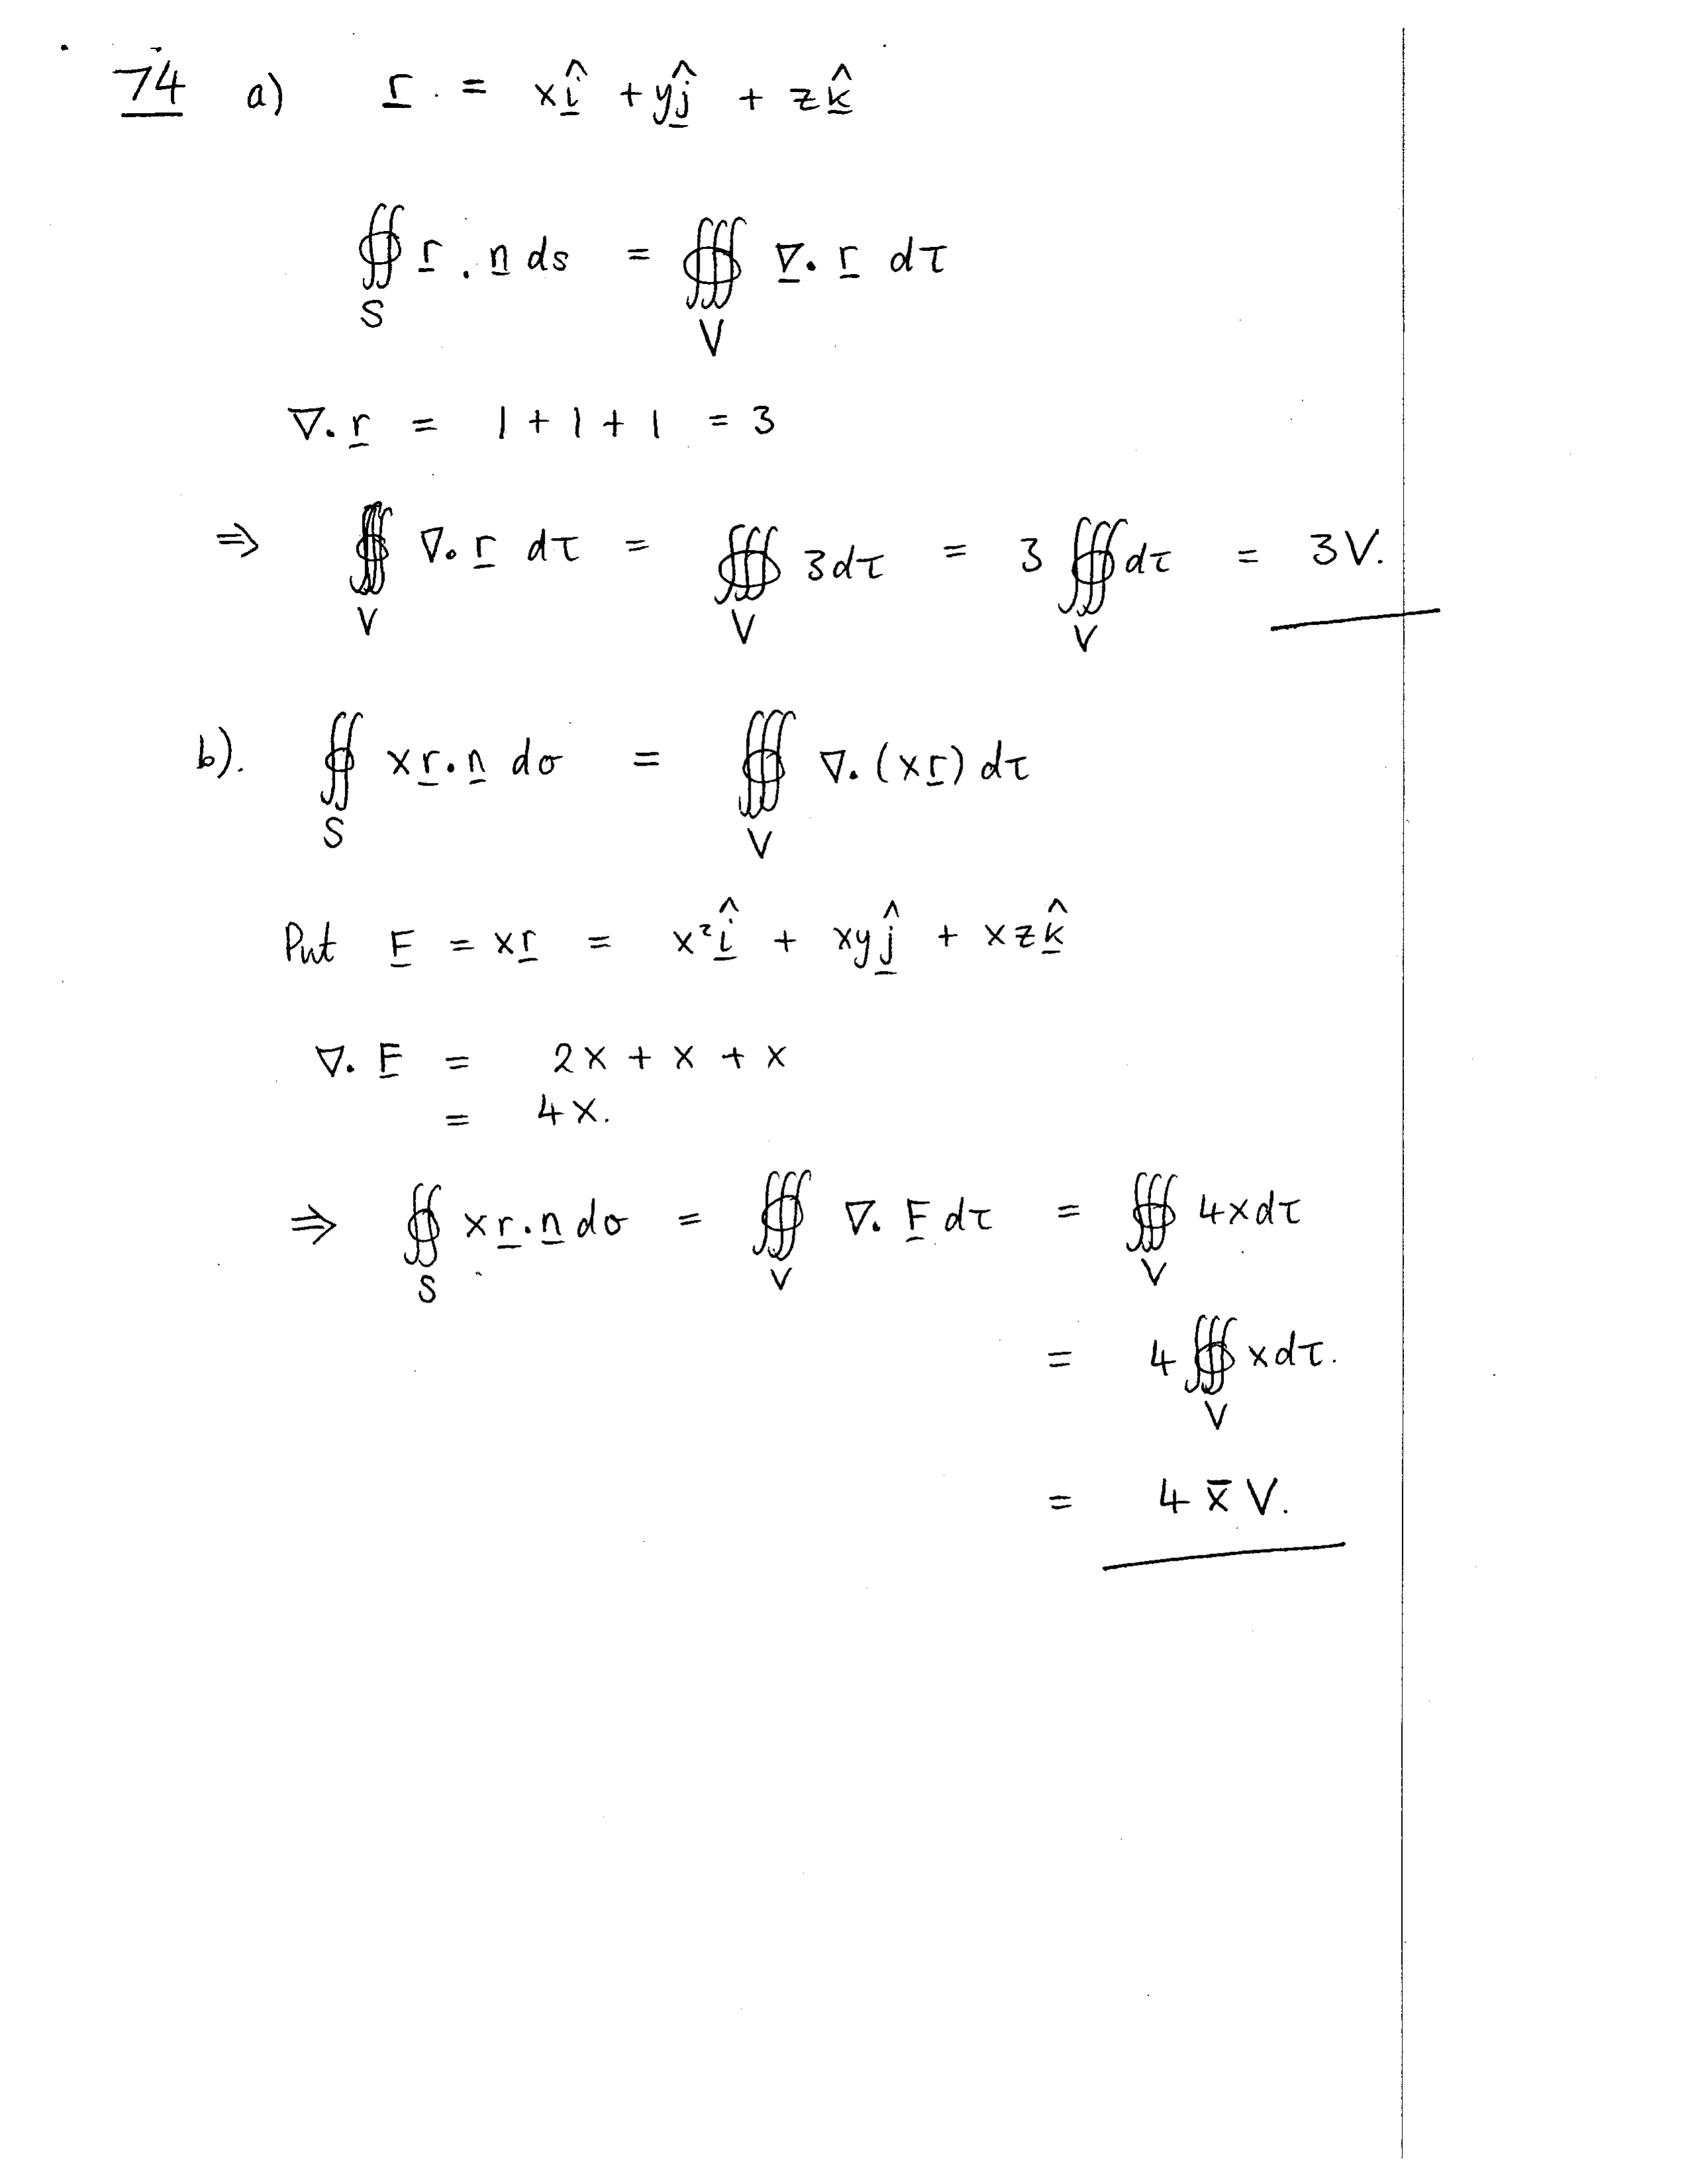 74 a) r̲ = xî̲ + yĵ̲ + zk̲̂
∯_S r̲ . n̲ ds = ∰_V ∇̲. r̲ dτ
∇. r̲ = 1 + 1 + 1 = 3
⇒ ∰_V ∇. r̲ dτ = ∰_V 3dτ = 3 ∰_V dτ = 3V.
b). ∯_S x r̲. n̲ dσ = ∰_V ∇. (x r̲) dτ
Put F̲ = x r̲ = x²î̲ + xyĵ̲ + xzk̲̂
∇. F̲ = 2x + x + x
= 4x.
⇒ ∯_S x r̲. n̲ dσ = ∰_V ∇. F̲ dτ = ∰_V 4x dτ
= 4 ∰_V x dτ.
= 4 x̄ V.